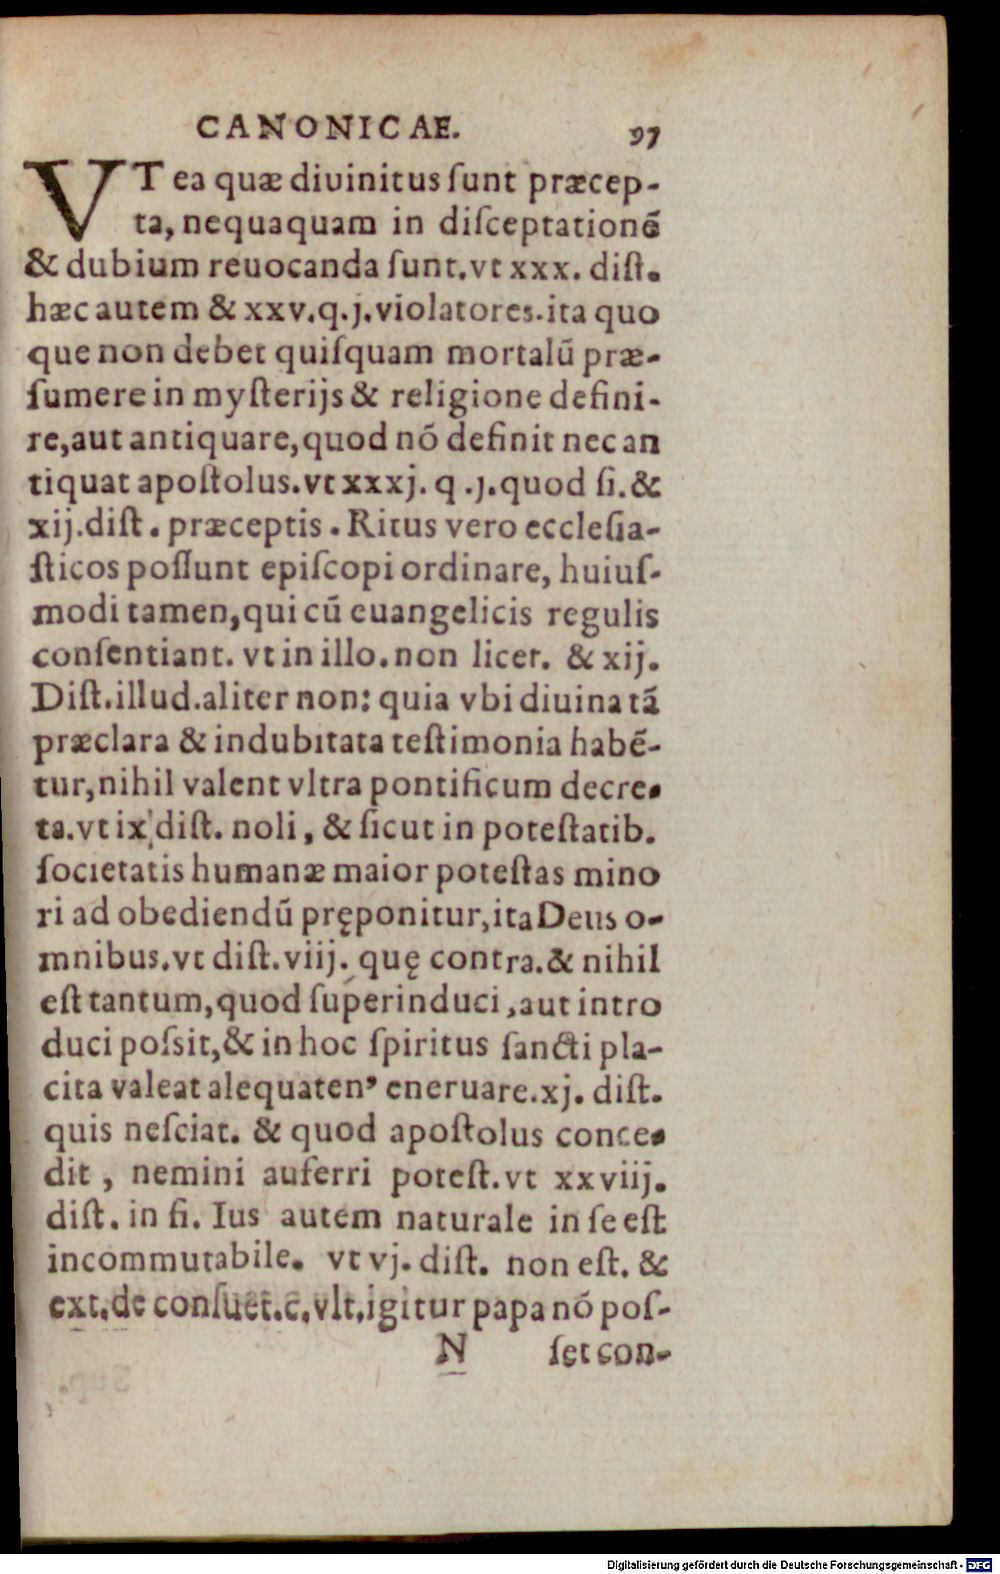 CANONICAE. 97
VT ea quæ diuinitus ſunt præcep-
ta, nequaquam in diſceptationẽ
& dubium reuocanda ſunt. vt xxx. diſt.
hæc autem & xxv. q. j. violatores. ita quo
que non debet quiſquam mortalũ præ-
ſumere in myſterijs & religione defini-
re, aut antiquare, quod nõ definit nec an
tiquat apoſtolus. vt xxxj. q. j. quod ſi. &
xij. diſt. præceptis. Ritus vero eccleſia-
ſticos poſſunt epiſcopi ordinare, huiuſ-
modi tamen, qui cũ euangelicis regulis
conſentiant. vt in illo. non licet. & xij.
Diſt. illud. aliter non: quia vbi diuina tã
præclara & indubitata teſtimonia habẽ-
tur, nihil valent vltra pontificum decre-
ta. vt ix diſt. noli, & ſicut in poteſtatib.
ſocietatis humanæ maior poteſtas mino
ri ad obediendũ pręponitur, ita Deus o-
mnibus. vt diſt. viij. quę contra. & nihil
eſt tantum, quod ſuperinduci, aut intro
duci poſsit, & in hoc ſpiritus ſancti pla-
cita valeat alequatenꝰ eneruare. xj. diſt.
quis neſciat. & quod apoſtolus conce-
dit, nemini auferri poteſt. vt xxviij.
diſt. in fi. Ius autem naturale in ſe eſt
incommutabile. vt vj. diſt. non eſt. &
ext. de conſuet. c. vlt. igitur papa nõ poſ-
N ſet con-
Digitalisierung gefördert durch die Deutsche Forschungsgemeinschaft - DFG